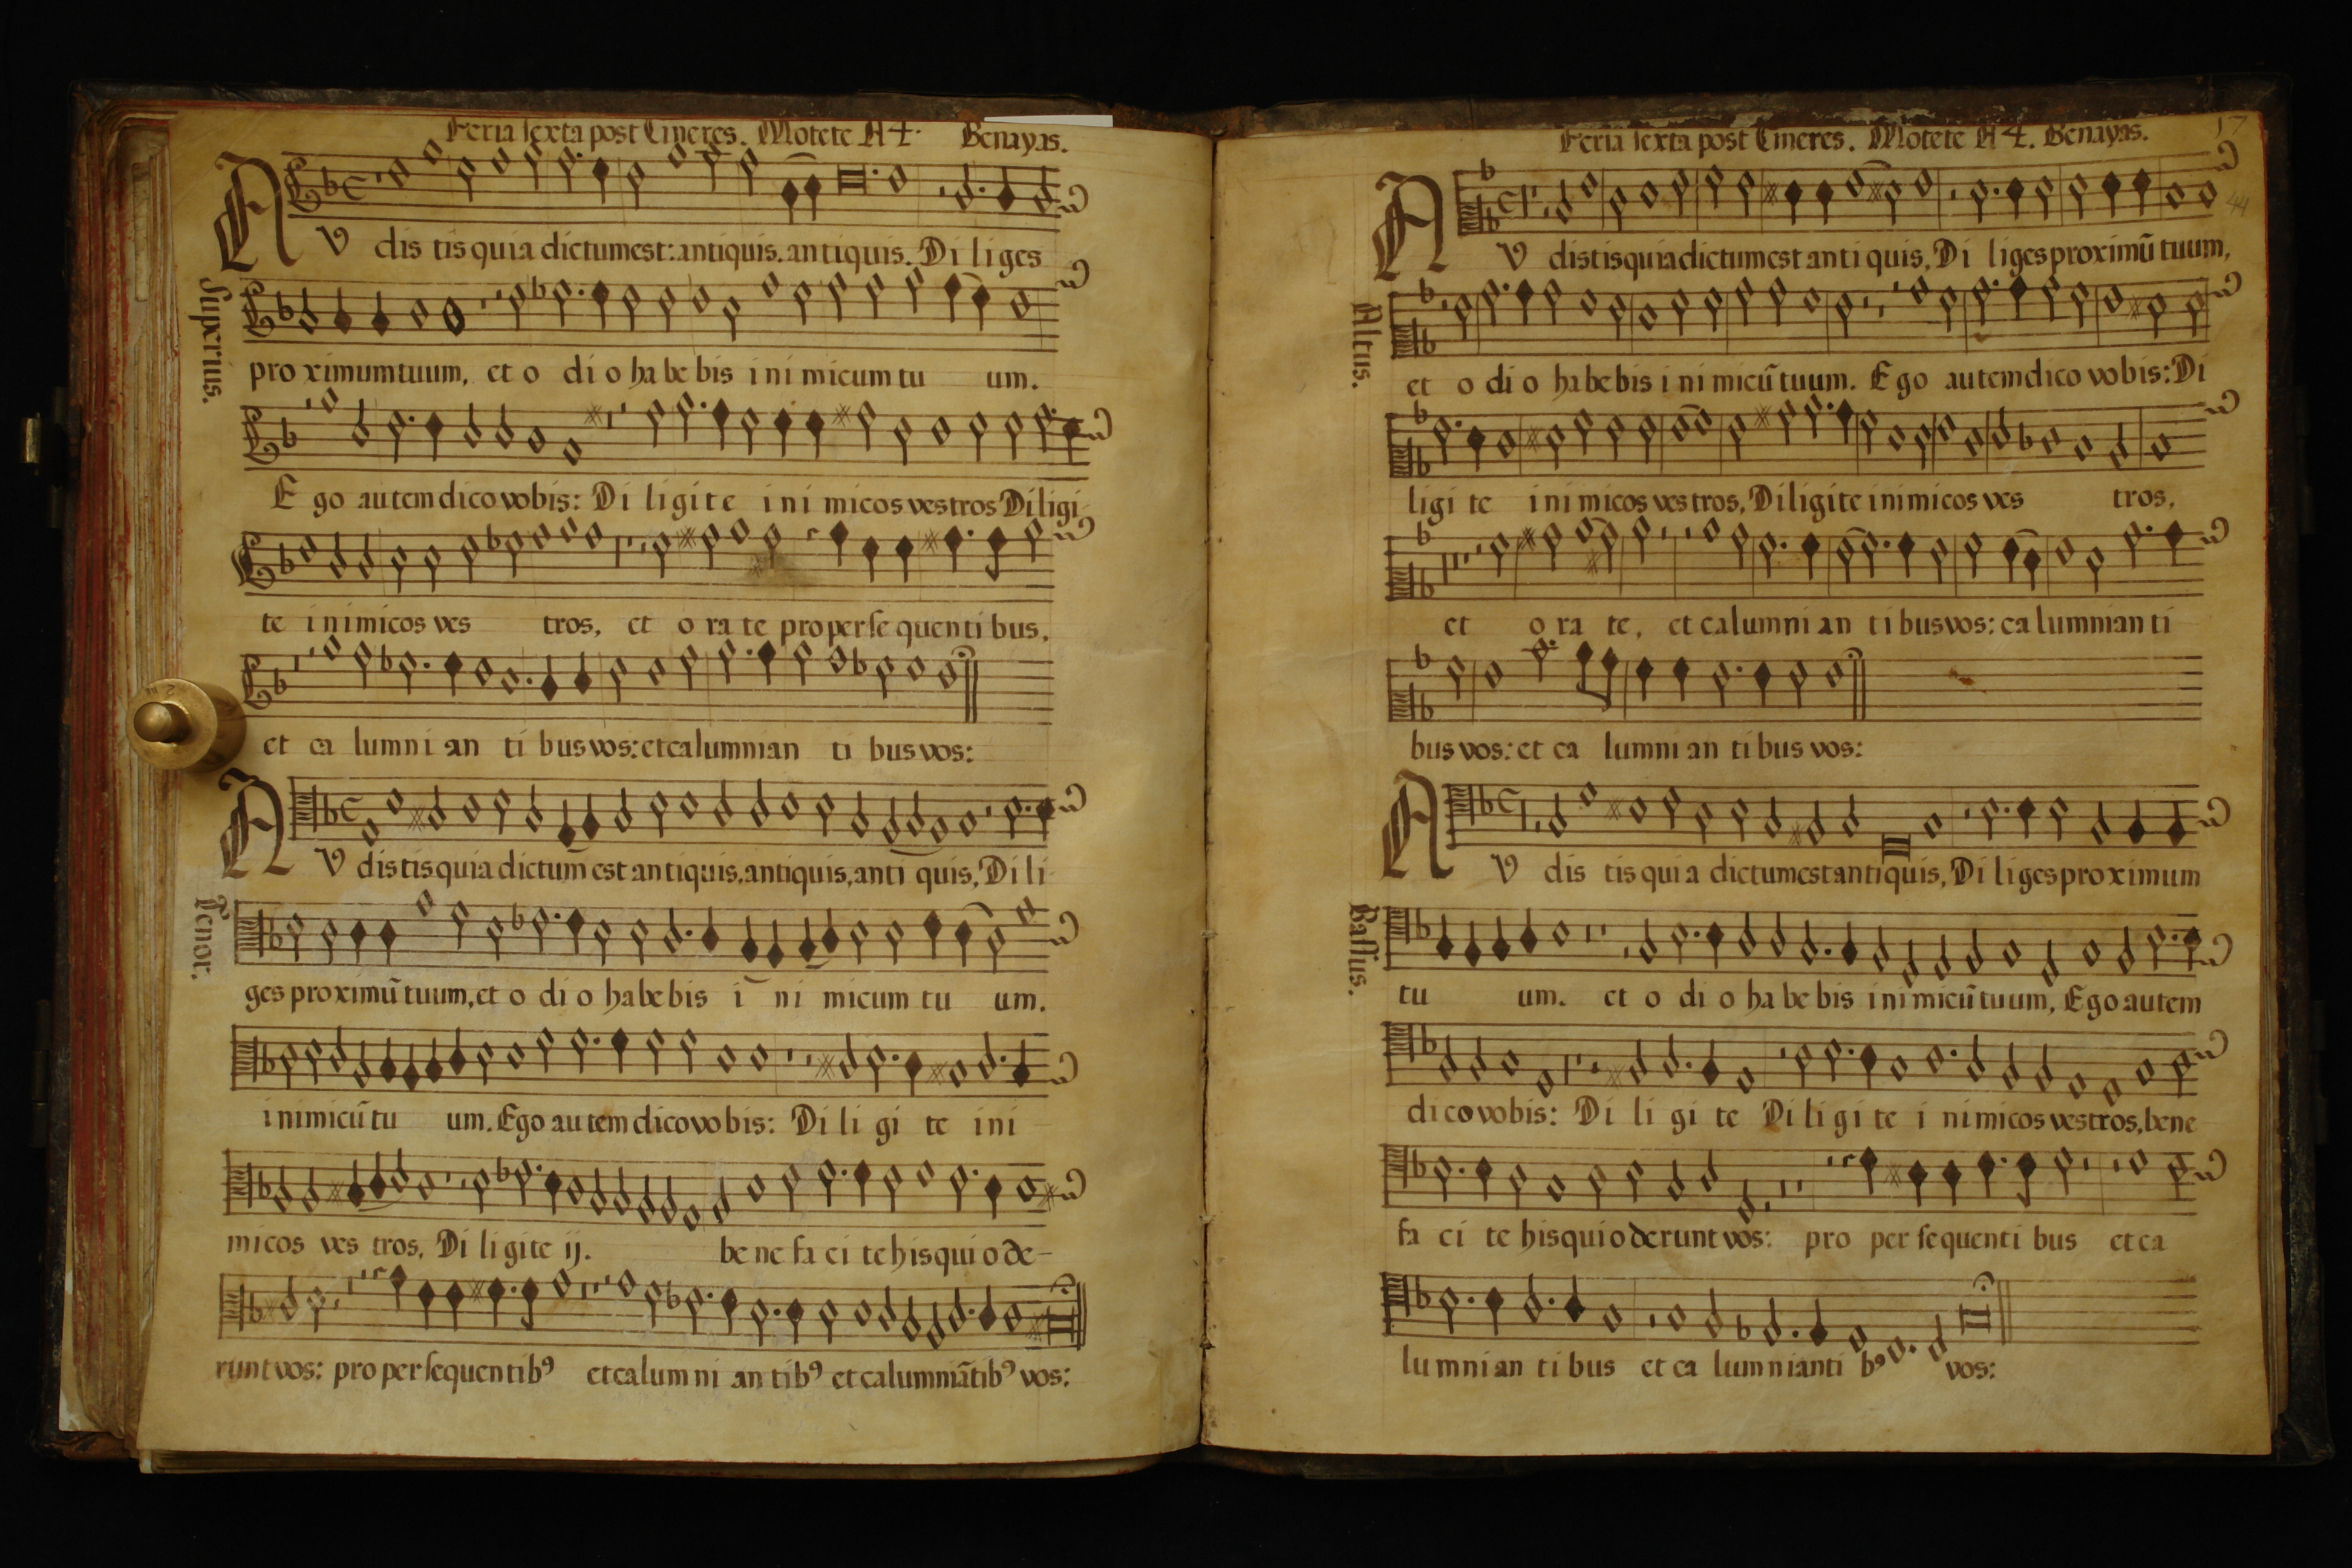 Feria sexta post Cineres. Motete A 4. Benayas.
AV dis tis quia dictum est: antiquis. antiquis. Di li ges
Superius.
pro ximum tuum, et o di o ha be bis i ni micum tu um.
E go autem dico vobis: Di li gi te i ni micos vestros Diligi
te inimicos ves tros, et o ra te pro perse quen ti bus,
et ca lumni an ti bus vos: et calumnian ti bus vos:
AV dis tis quia dictum est an tiquis, antiquis, anti quis, Di li
Tenor.
ges proximũ tuum, et o di o ha be bis i ni micum tu um.
inimicũ tu um. Ego autem dico vobis: Di li gi te i ni
micos ves tros, Di li gite ij. be ne fa ci te his qui o de-
runt vos: pro persequentibꝰ et calum ni an tibꝰ et calumniãtibꝰ vos:
17
Feria sexta post Cineres. Motete A 4. Benayas.
44
AV dis tis quia dictum est an ti quis, Di li ges proximũ tuum,
Altus.
et o di o ha be bis i ni micũ tuum. E go autem dico vobis: Di
ligi te ini micos ves tros, Diligite inimicos ves tros,
et o ra te, et calumni an ti bus vos: ca lumnian ti
bus vos: et ca lumni an ti bus vos:
AV dis tis qui a dictum est antiquis, Di li ges proximum
Bassus.
tu um. et o di o ha be bis i ni micũ tuum, Ego autem
dico vobis: Di li gi te Di li gi te i nimicos vestros, bene
fa ci te his qui o derunt vos: pro per sequenti bus et ca
lumni an ti bus et ca lumnianti bꝰ vos: